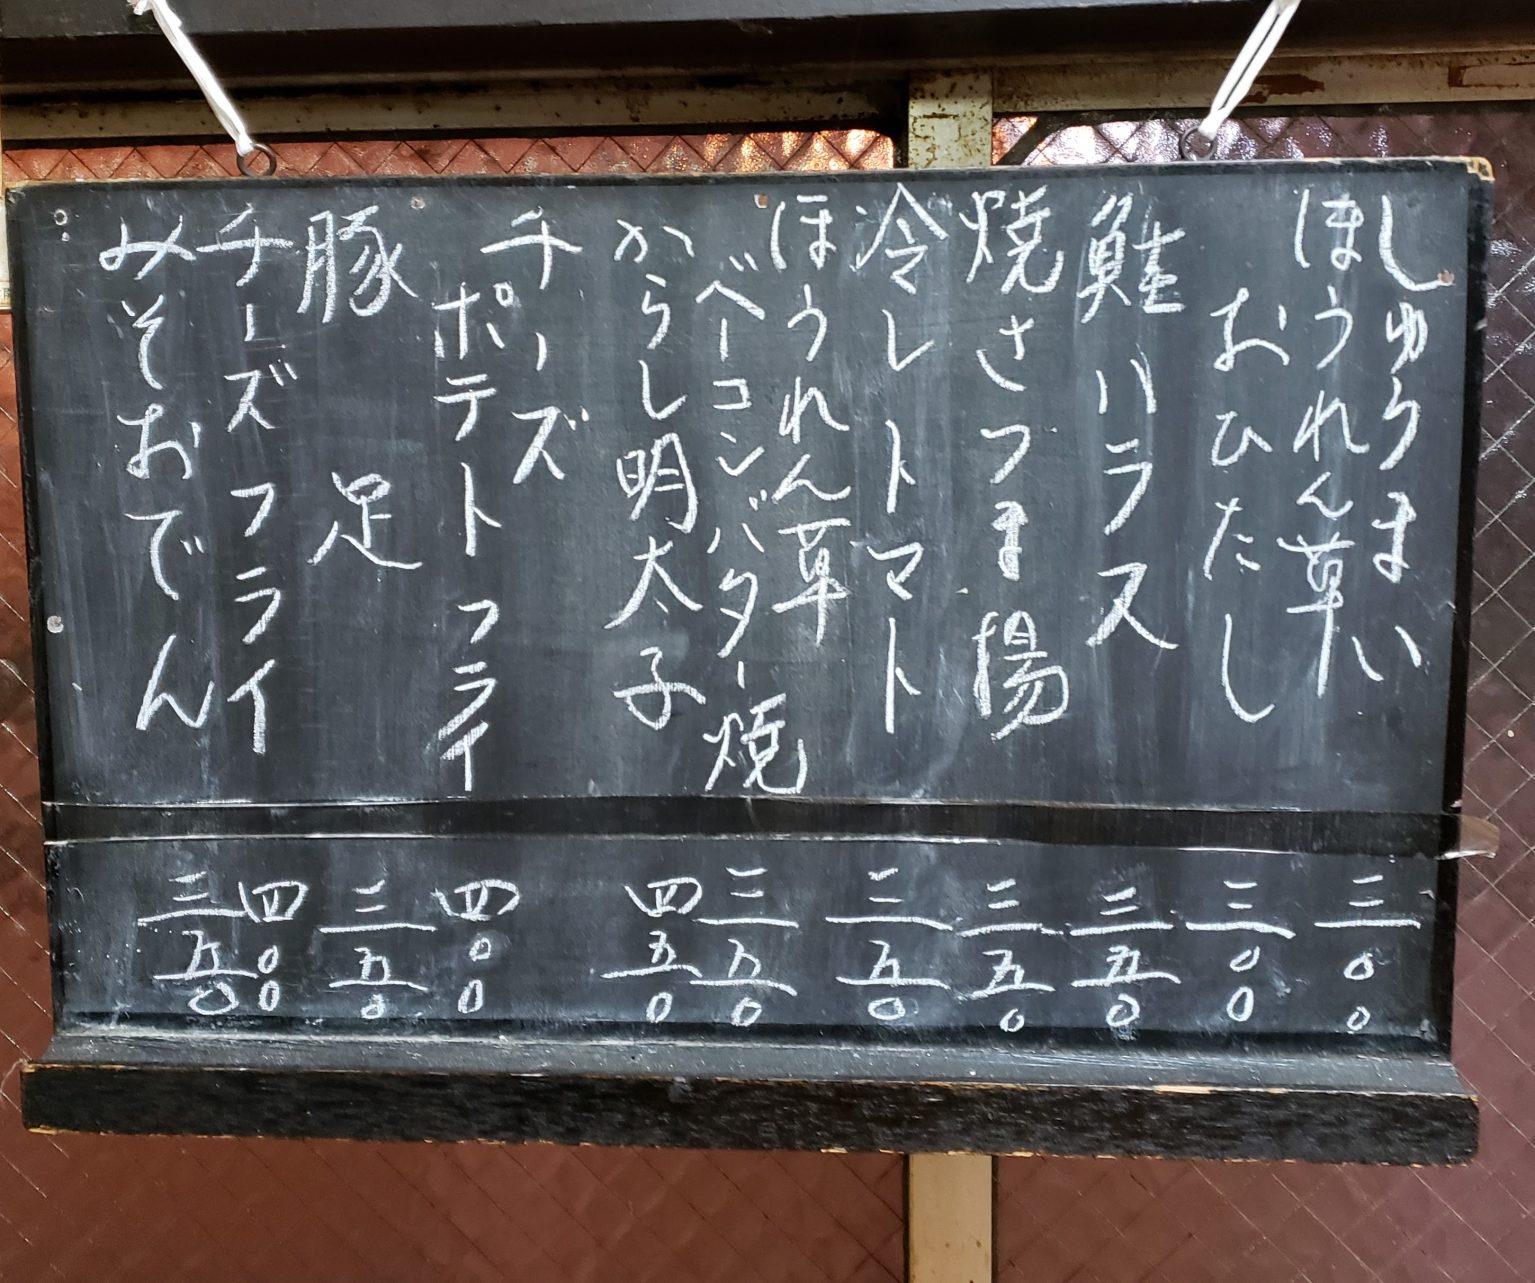 しゅうまい
三〇〇
ほうれん草
おひたし
三〇〇
鮭ハラス
三五〇
焼さつま揚
三五〇
冷しトマト
三五〇
ほうれん草
ベーコンバター焼
三五〇
からし明太子
四五〇
チーズ
ポテトフライ
四〇〇
豚足
三五〇
チーズフライ
四〇〇
みそおでん
三五〇